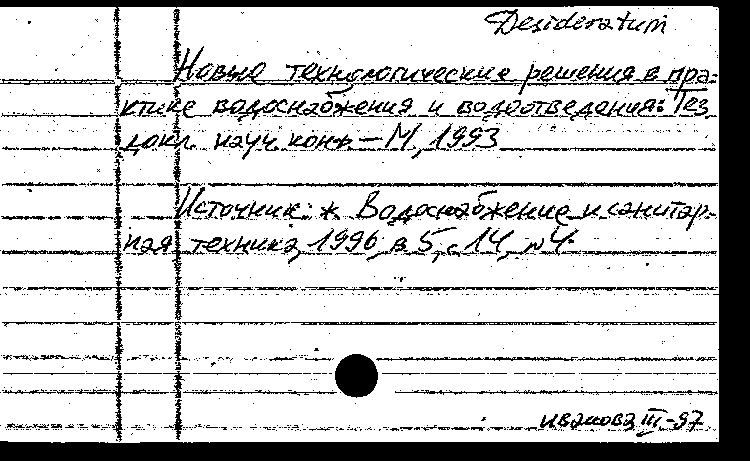 Desideratum
Новые технологические решения в пра-
ктике водоснабжения и водоотведения: Тез.
докл. науч. конф — М, 1993
Источник: ж. Водоснабжение и санитар-
ная техника, 1996, в 5, с 14, №4.
иванова III-97